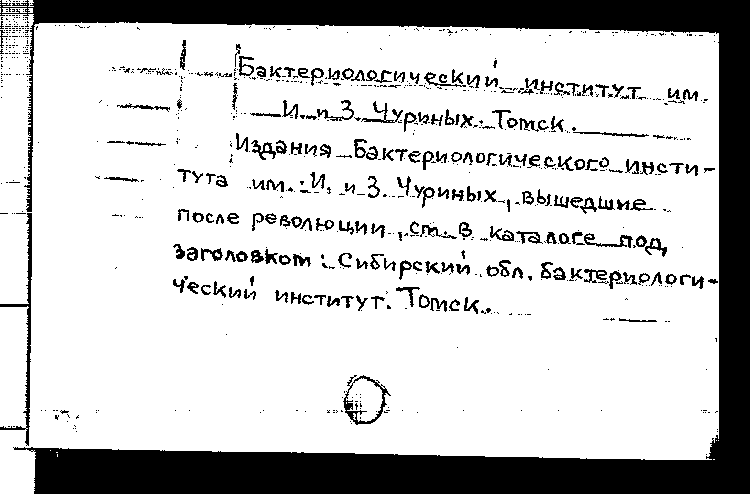 Бактериологический институт им.
И. и З. Чуриных. Томск.
Издания Бактериологического инсти-
тута им. И. и З. Чуриных, вышедшие
после революции, см. в каталоге под
заголовком: Сибирский обл. бактериологи-
ческий институт. Томск.